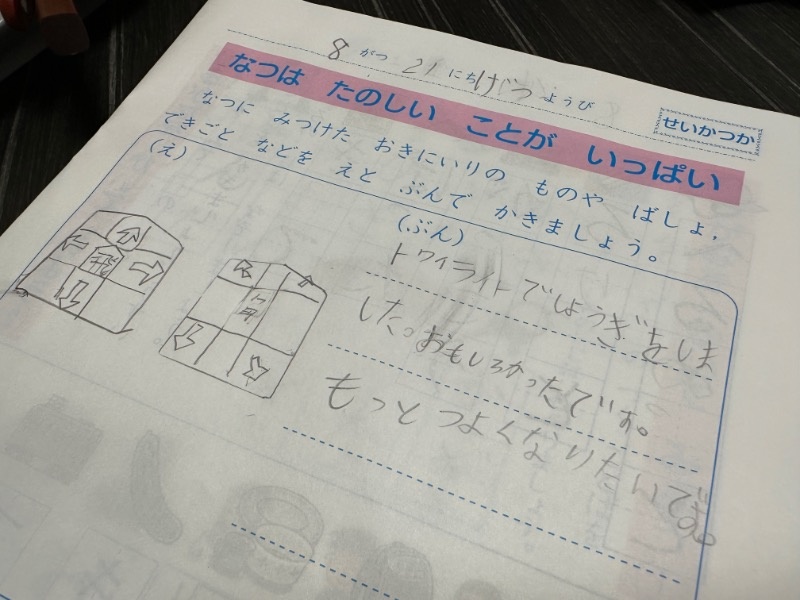 8 がつ 21 にち げつ ようび
なつは たのしい ことが いっぱい
せいかつか
なつに みつけた おきにいりの ものや ばしょ，
できごと などを えと ぶんで かきましょう。
(え)
(ぶん)
飛
トワイライトでしょうぎをしま
した。おもしろかったです。
もっとつよくなりたいです。